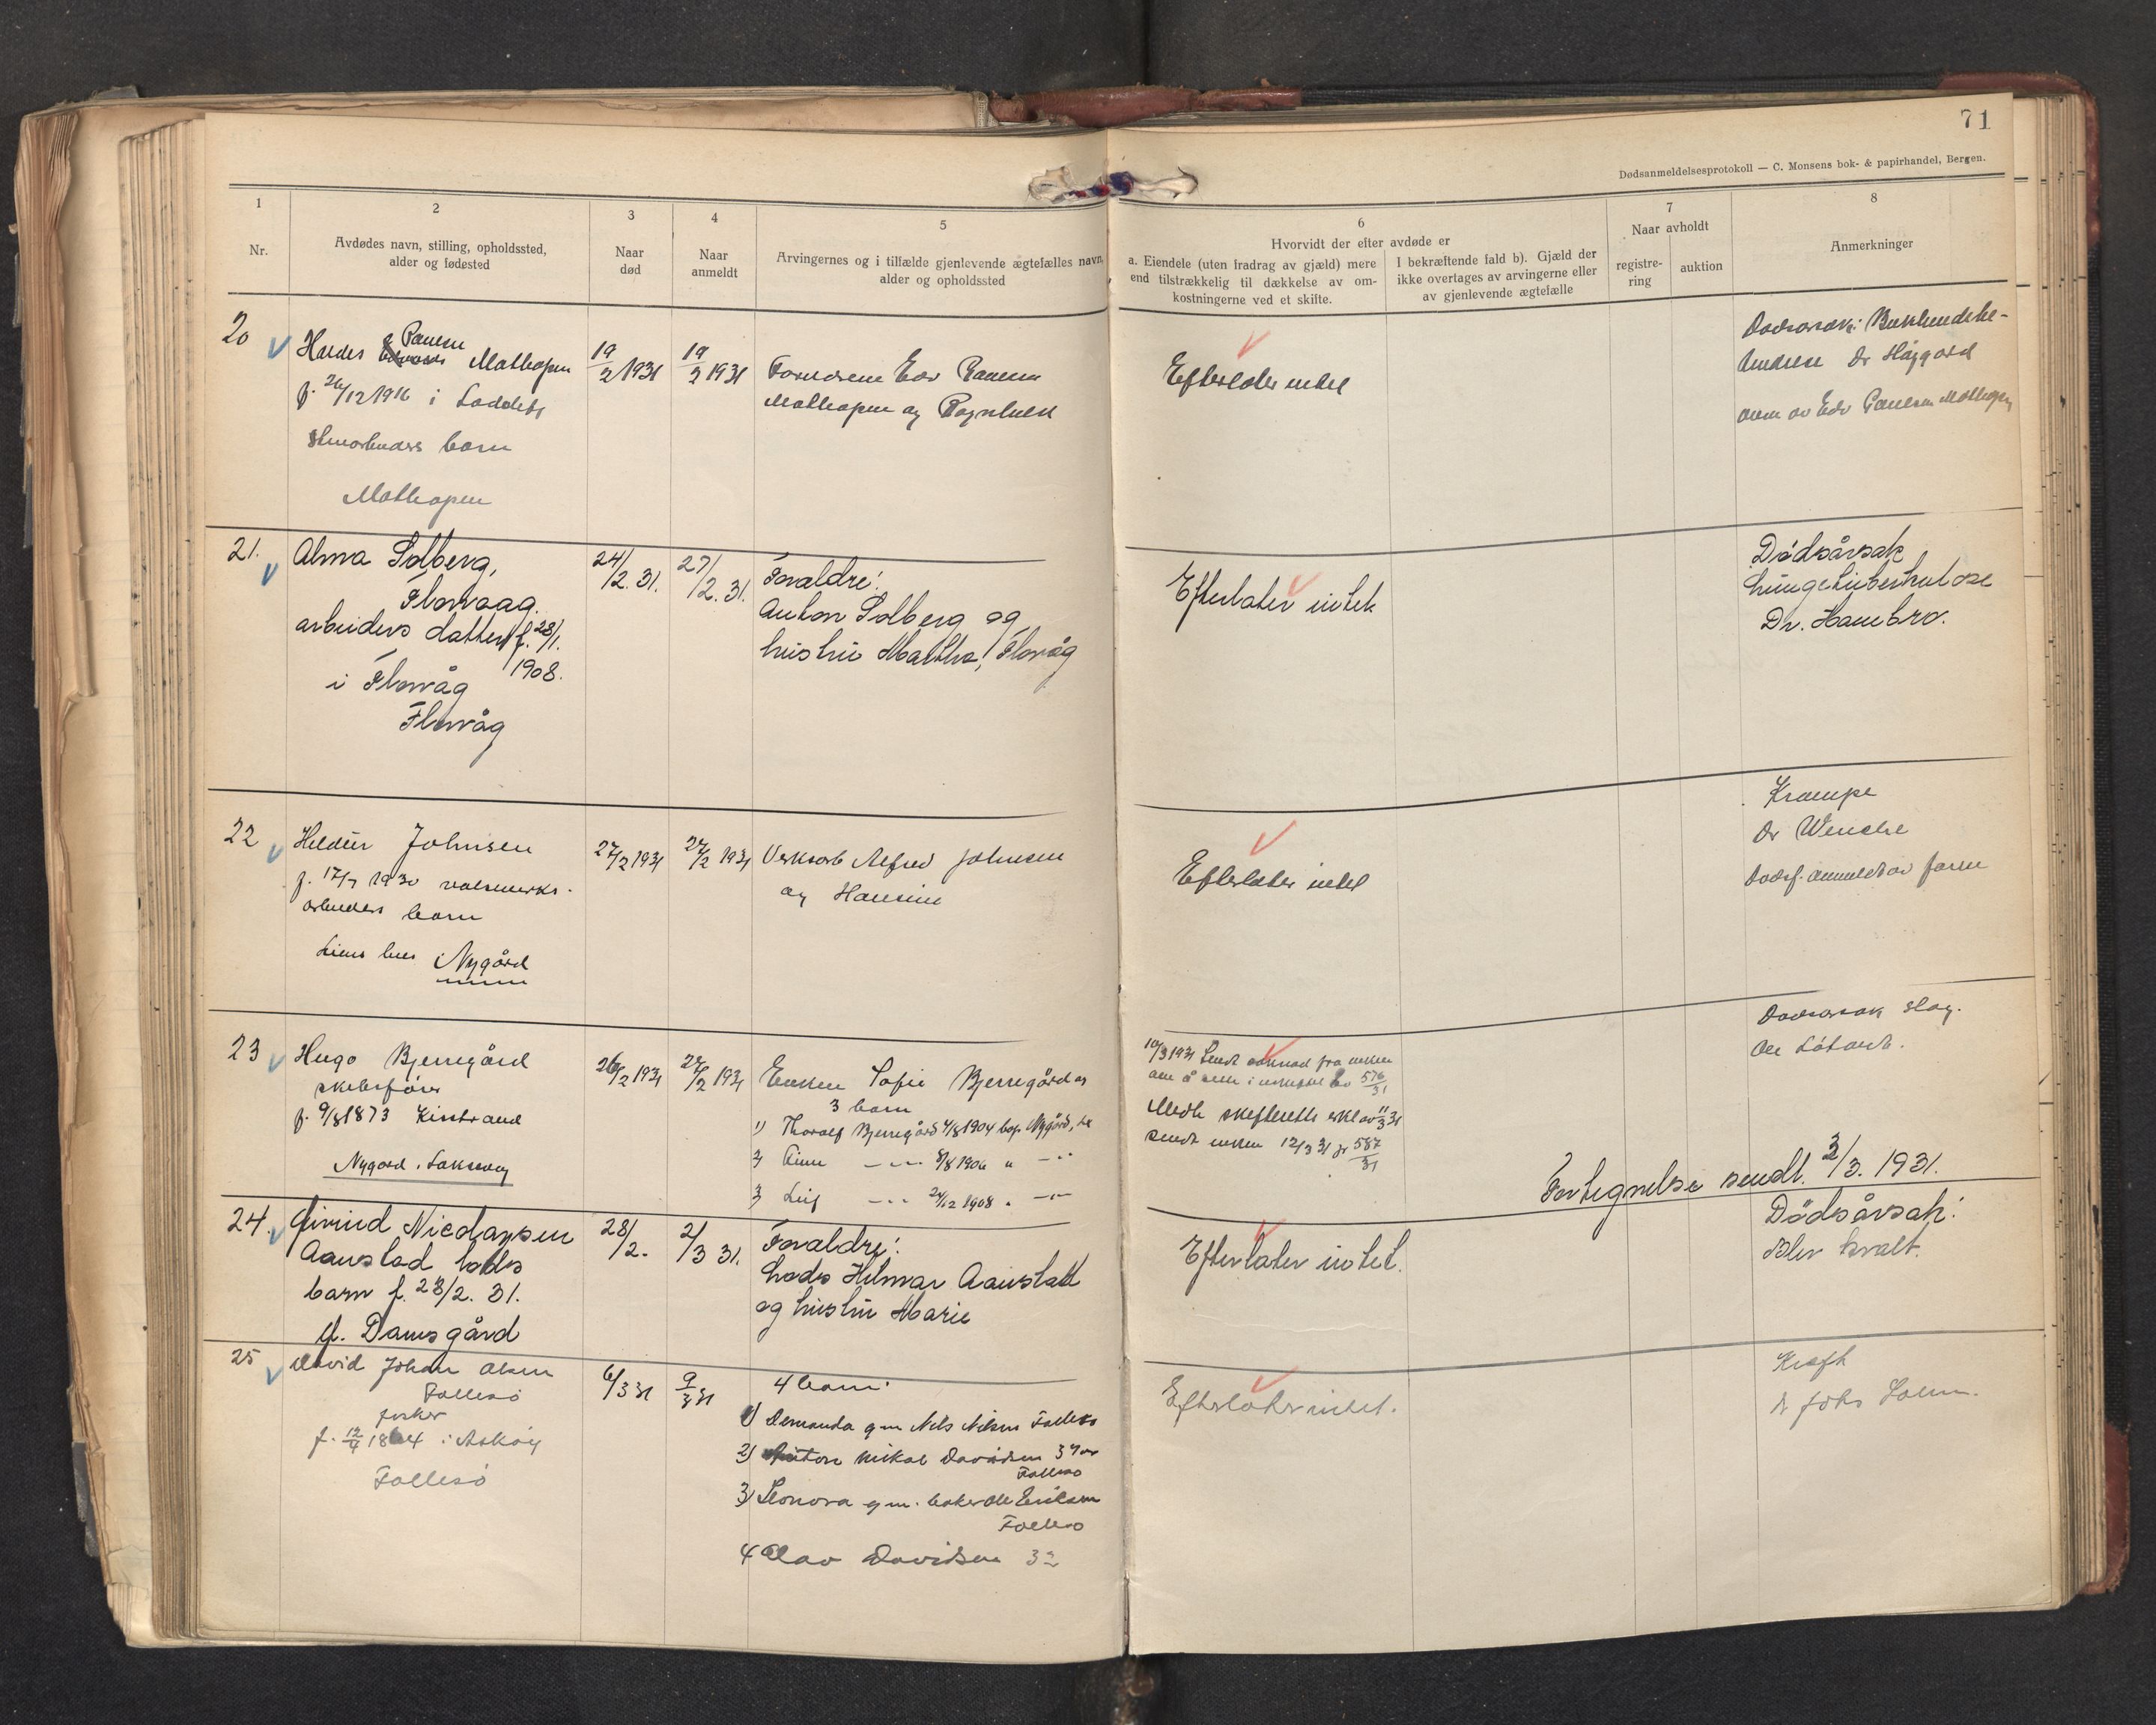 71
Dødsanmeldelsesprotokoll — C. Monsens bok- & papirhandel, Bergen.
1
Nr.
2
Avdødes navn, stilling, opholdssted,
alder og fødested
3
Naar
død
4
Naar
anmeldt
5
Arvingernes og i tilfælde gjenlevende ægtefælles navn,
alder og opholdssted
6
Hvorvidt der efter avdøde er
a. Eiendele (uten fradrag av gjæld) mere
end tilstrækkelig til dækkelse av om-
kostningerne ved et skifte.
I bekræftende fald b). Gjæld der
ikke overtages av arvingerne eller
av gjenlevende ægtefælle
7
Naar avholdt
registre-
ring
auktion
8
Anmerkninger
20
Paulsen
Mathopen
f. 26/12 1916 i Loddefj
barn
Mathopen
19/2 1931
19/2 1931
Forældrene Edv Paulsen
Mathopen og Ragnhild
Efterlater intet
Dødsårsak: Bukhindebe-
tendelse Dr Hågård
anm av Edv Paulsen Mathopen
21.
Alma Solberg,
Florvaag.
arbeiders datter f. 28/1.
1908.
i Florvåg
Florvåg
24/2. 31.
27/2. 31.
Foraldre:
Anton Solberg og
hustru Martha, Florvåg
Efterlater intet
Dødsårsak
lungetuberkulose
Dr. Hambro.
22
Johnsen
f. 17/7 1930
arbeiders barn
Liens hus Nygård
27/2 1931
27/2 1931
Verksarb Alfred Johnsen
og Hansine
Efterlater intet
Krampe
Dr Wencke
Dødsf. anmeldt av faren
23
Hugo Bjerregård
skibsfører
f. 9/8 1873 Kistrand
Nygård i Laksevåg
26/2 1931
27/2 1931
Enken Sofie Bjerregård og
3 barn
1) Thoralf Bjerregård 4/8 1904 bop. Nygård,
2) 8/8 1906 " — " —
3) Leif — " — 24/12 1908 " — " —
10/3 1931 Sendt søknad fra enken
om å sitte i uskiftet bo 576/31
Medt skifteretts erkl av 11/3 31
sendt enken 12/3 31 jr 587/31
Dødsårsak slag.
Fortegnelse sendt 2/3. 1931.
24.
Øivind Nicolaysen
Aanstad lods
barn f. 28/2. 31.
Gl. Damsgård
28/2.
2/3 31.
Foraldre:
Lods Hilmar Aanstad
og hustru Marie
Efterlater intet.
Dødsårsak:
Blev kvalt.
25
David Johan Olsen
Follesø
fisker
f. 12/4 1864 i Askøy
Follesø
6/3 31
9/3 31
4 barn:
1) Amanda gm Nils Nilsen Follesø
2) Anton Mikal Davidsen 37 år
Follesø
3) Leonora gm. baker Ole Eriksen
Follesø
4 Olav Davidsen 32
Efterlater intet.
Kræft